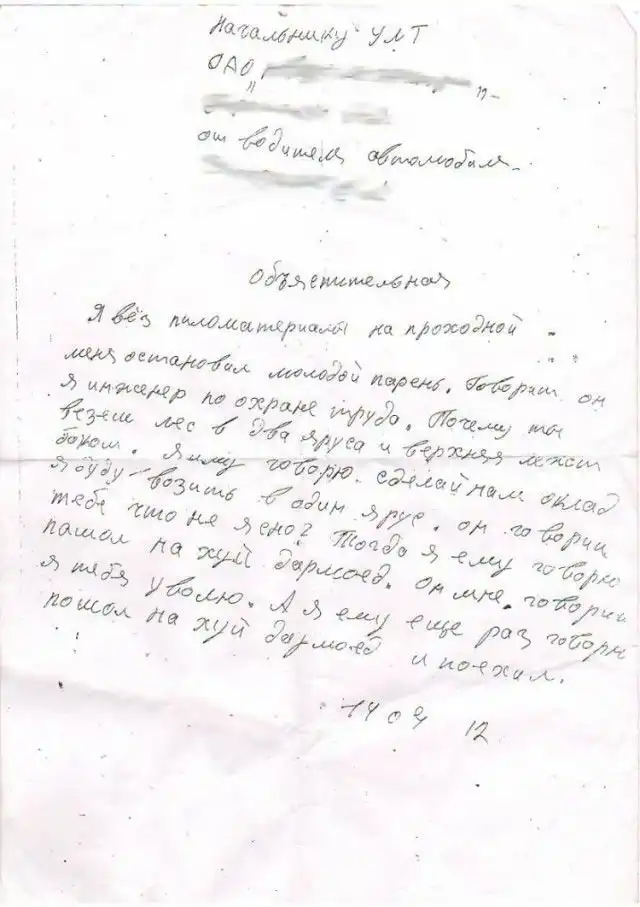 Начальнику УЛТ
ОАО "
"-
от водителя автомобиля
Объяснительная
Я вёз пиломатериалы на проходной
меня остановил молодой парень. Говорит он
я инженер по охране труда. Почему ты
везеш лес в два яруса и верхняя лежит
боком. Я иму говорю. сделай нам оклад
я буду возить в один ярус. он говорит
тебе что не ясно? Тогда я ему говорю
пашол на хуй дармоед. он мне говорит
я тебя уволю. А я ему еще раз говорю
пошол на хуй дармоед и поехал.
14 04 12